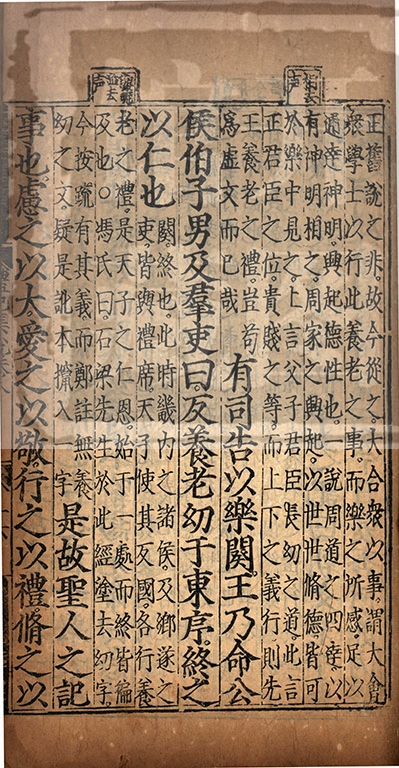 正舊說之非故今從之大合衆以事謂大會
衆學士以行此養老之事而樂之所感足以
通達神明興起德性也一說周道之四達以
有神明相之周家之興起以世世脩德皆可
於樂中見之上言父子君臣長幼之道此言
正君臣之位貴賤之等而上下之義行則先
王養老之禮豈苟
為虛文而已哉
有司告以樂闋王乃命公
侯伯子男及羣吏曰反養老幼于東序終之
以仁也
闋終也此時畿內之諸侯及鄉遂之
吏皆與禮席天子使其反國各行養
老之禮是天子之仁恩始于一處而終皆徧
及也○馮氏曰石梁先生於此經塗去幼字
今按疏有其義而鄭註無養
幼之文疑是訛本攙入一字
是故聖人之記
事也慮之以大愛之以敬行之以禮脩之以